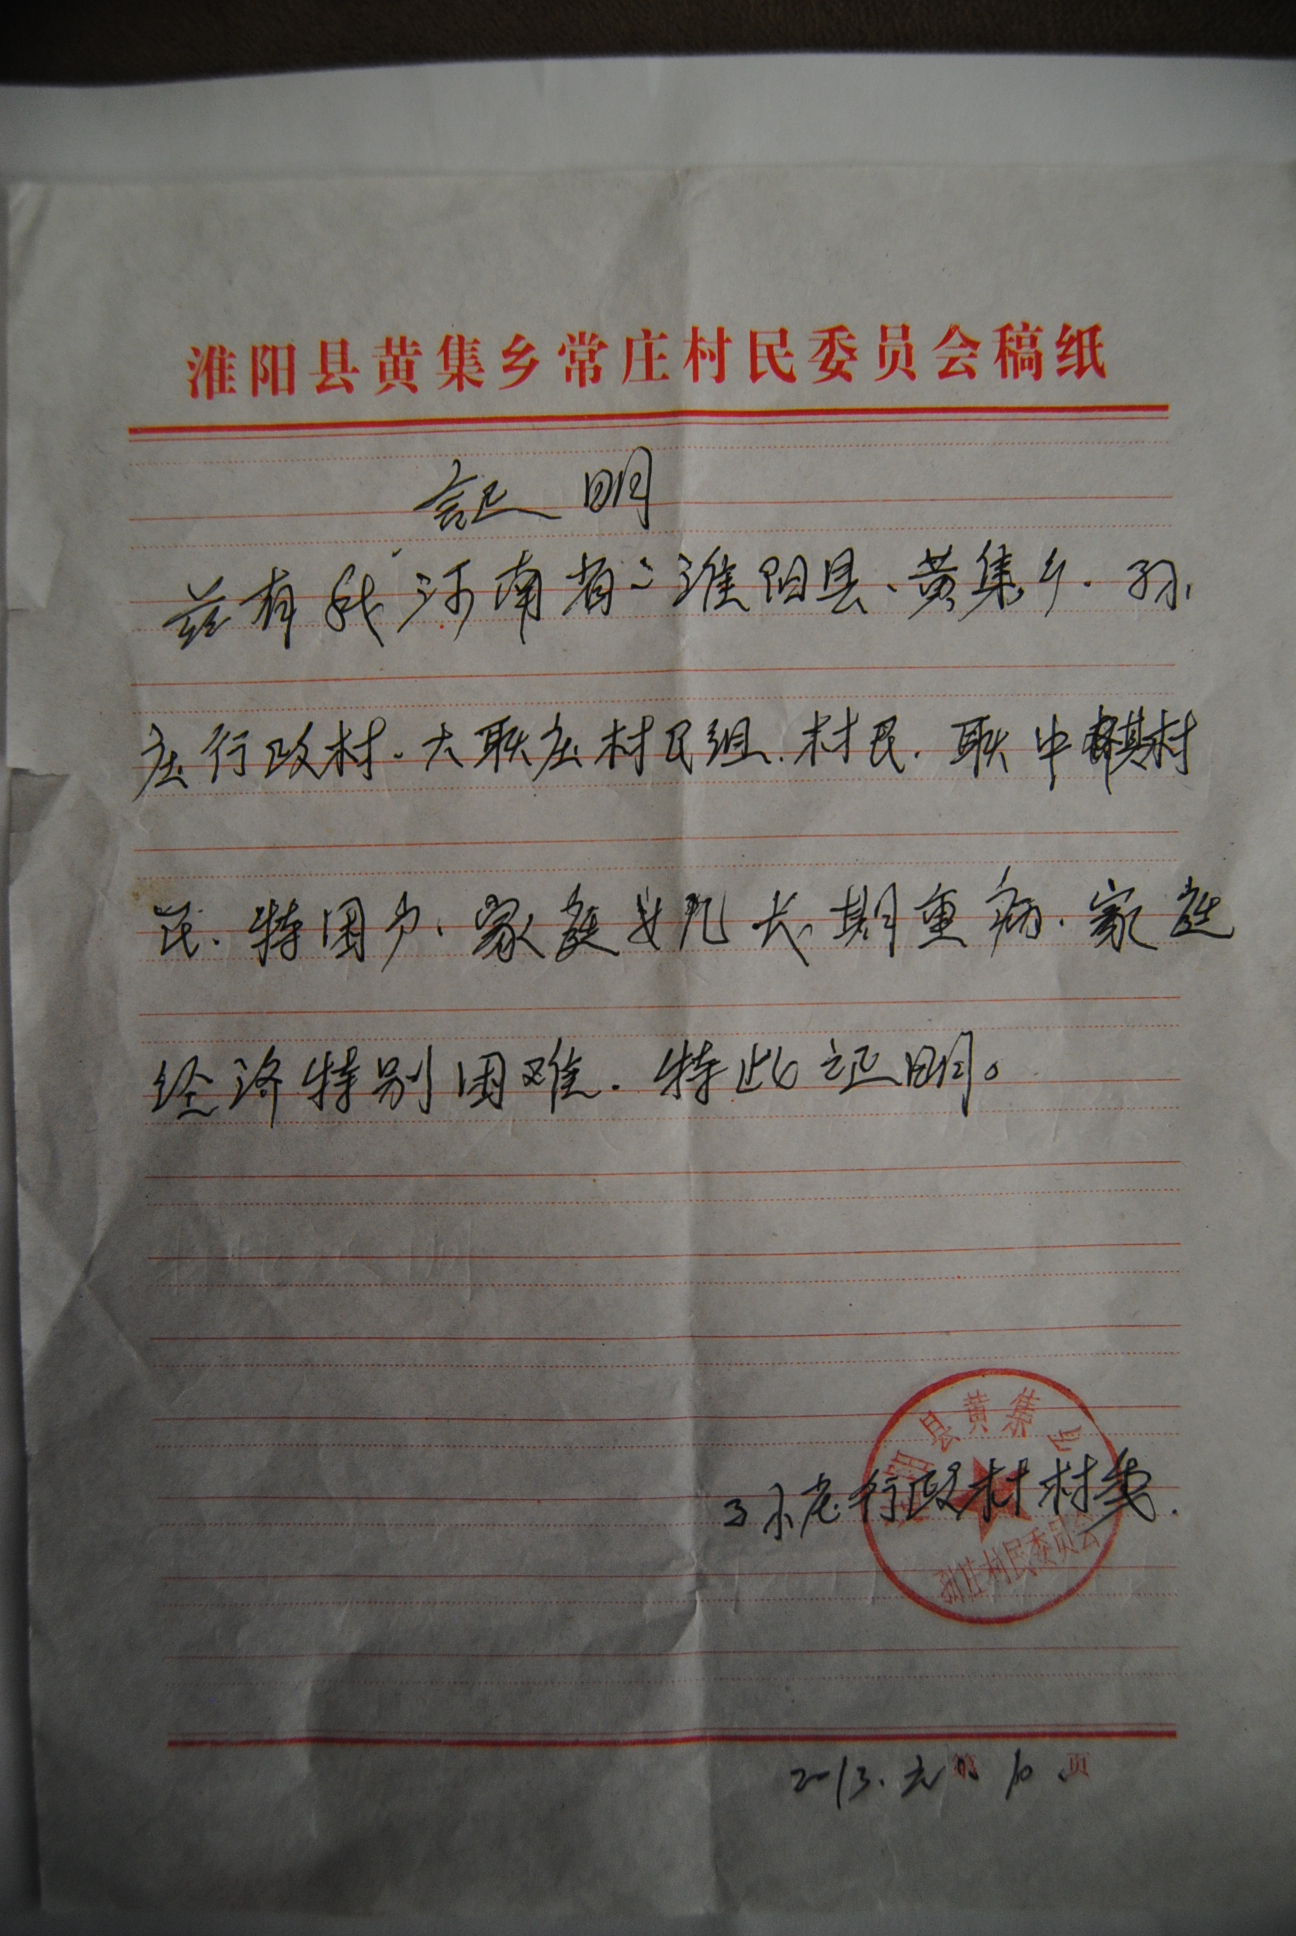 淮阳县黄集乡常庄村民委员会稿纸
证明
兹有我河南省、淮阳县、黄集乡.孙
庄行政村.大耿庄村民组.村民.耿中麒村
民.特困户、家庭女儿长期重病.家庭
经济特别困难.特此证明。
阳县黄集乡
孙庄行政村村委.
孙庄村民委员会
2013.元. 10.
第 页